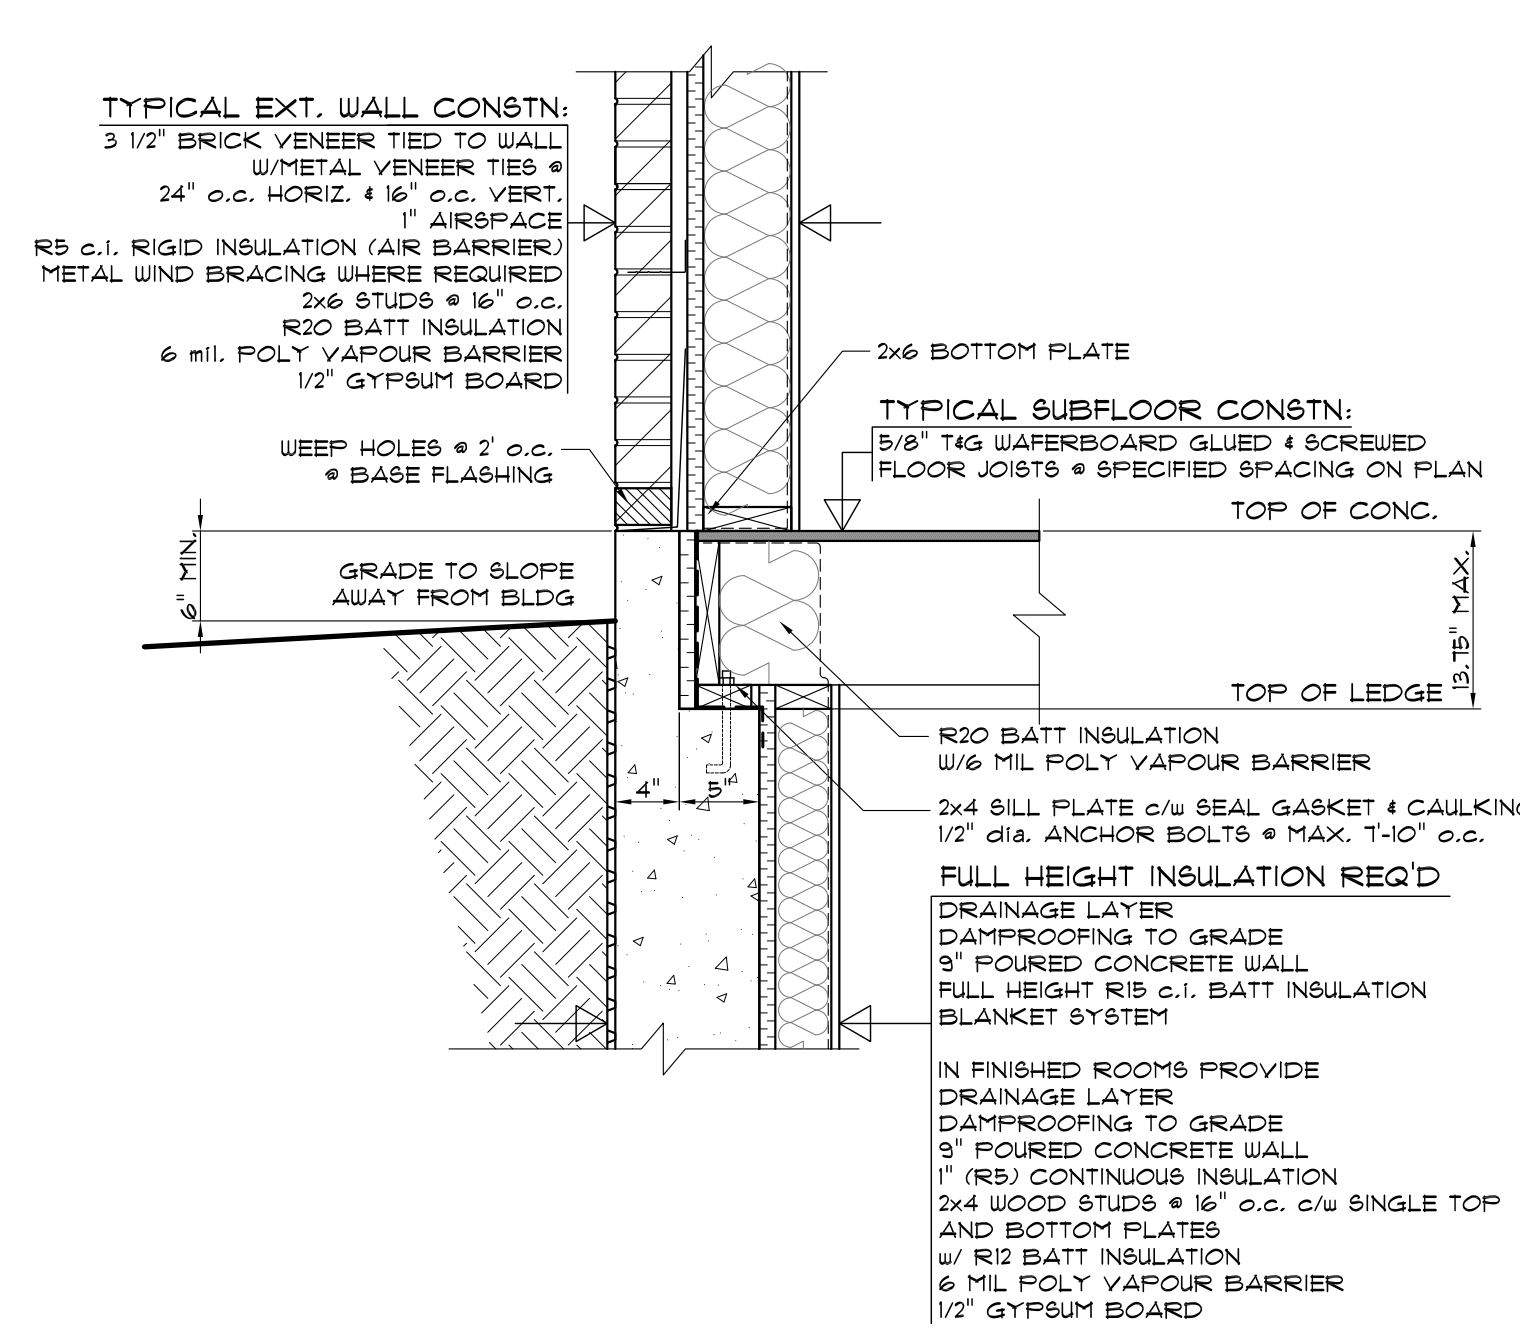 TYPICAL EXT. WALL CONSTN:
3 1/2" BRICK VENEER TIED TO WALL
W/METAL VENEER TIES @
24" o.c. HORIZ. & 16" o.c. VERT.
1" AIRSPACE
R5 c.i. RIGID INSULATION (AIR BARRIER)
METAL WIND BRACING WHERE REQUIRED
2x6 STUDS @ 16" o.c.
R20 BATT INSULATION
6 mil. POLY VAPOUR BARRIER
1/2" GYPSUM BOARD
WEEP HOLES @ 2' o.c.
@ BASE FLASHING
6" MIN.
GRADE TO SLOPE
AWAY FROM BLDG
4"
5"
2x6 BOTTOM PLATE
TYPICAL SUBFLOOR CONSTN:
5/8" T&G WAFERBOARD GLUED & SCREWED
FLOOR JOISTS @ SPECIFIED SPACING ON PLAN
TOP OF CONC.
13.75" MAX.
TOP OF LEDGE
R20 BATT INSULATION
W/6 MIL POLY VAPOUR BARRIER
2x4 SILL PLATE c/w SEAL GASKET & CAULKING
1/2" dia. ANCHOR BOLTS @ MAX. 7'-10" o.c.
FULL HEIGHT INSULATION REQ'D
DRAINAGE LAYER
DAMPROOFING TO GRADE
9" POURED CONCRETE WALL
FULL HEIGHT R15 c.i. BATT INSULATION
BLANKET SYSTEM
IN FINISHED ROOMS PROVIDE
DRAINAGE LAYER
DAMPROOFING TO GRADE
9" POURED CONCRETE WALL
1" (R5) CONTINUOUS INSULATION
2x4 WOOD STUDS @ 16" o.c. c/w SINGLE TOP
AND BOTTOM PLATES
w/ R12 BATT INSULATION
6 MIL POLY VAPOUR BARRIER
1/2" GYPSUM BOARD